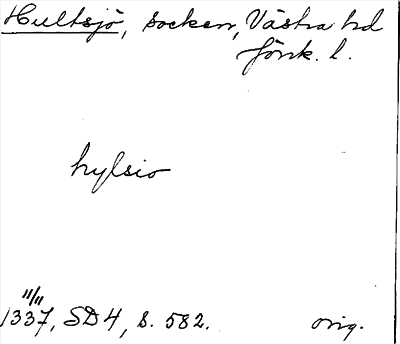 Hultsjö, socken, Västra hd
Jönk. l.
hylsio
11/11
1337, SD4, s. 582. orig.